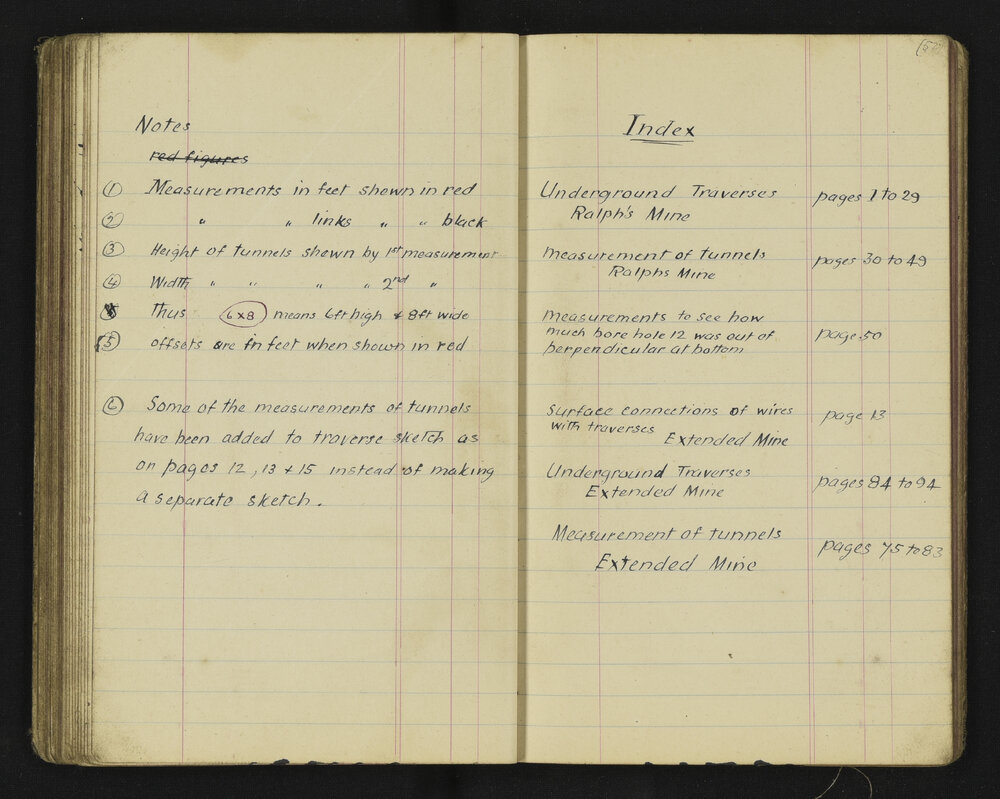 Notes
red figures
① Measurements in feet shewn in red
② " " links " " black
③ Height of tunnels shewn by 1st measurement
④ Width " " " " 2nd "
Thus 6x8 means 6ft high & 8ft wide
⑤ offsets are in feet when shown in red
⑥ Some of the measurements of tunnels
have been added to traverse sketch as
on pages 12, 13 + 15 instead of making
a separate sketch.
Index
Underground Traverses pages 1 to 29
Ralph's Mine
measurement of tunnels pages 30 to 49
Ralphs Mine
measurements to see how
much bore hole 12 was out of page 50
perpendicular at bottom
Surface connections of wires page 13
with traverses
Extended Mine
Underground Traverses pages 84 to 94
Extended Mine
Measurement of tunnels pages 75 to 83
Extended Mine